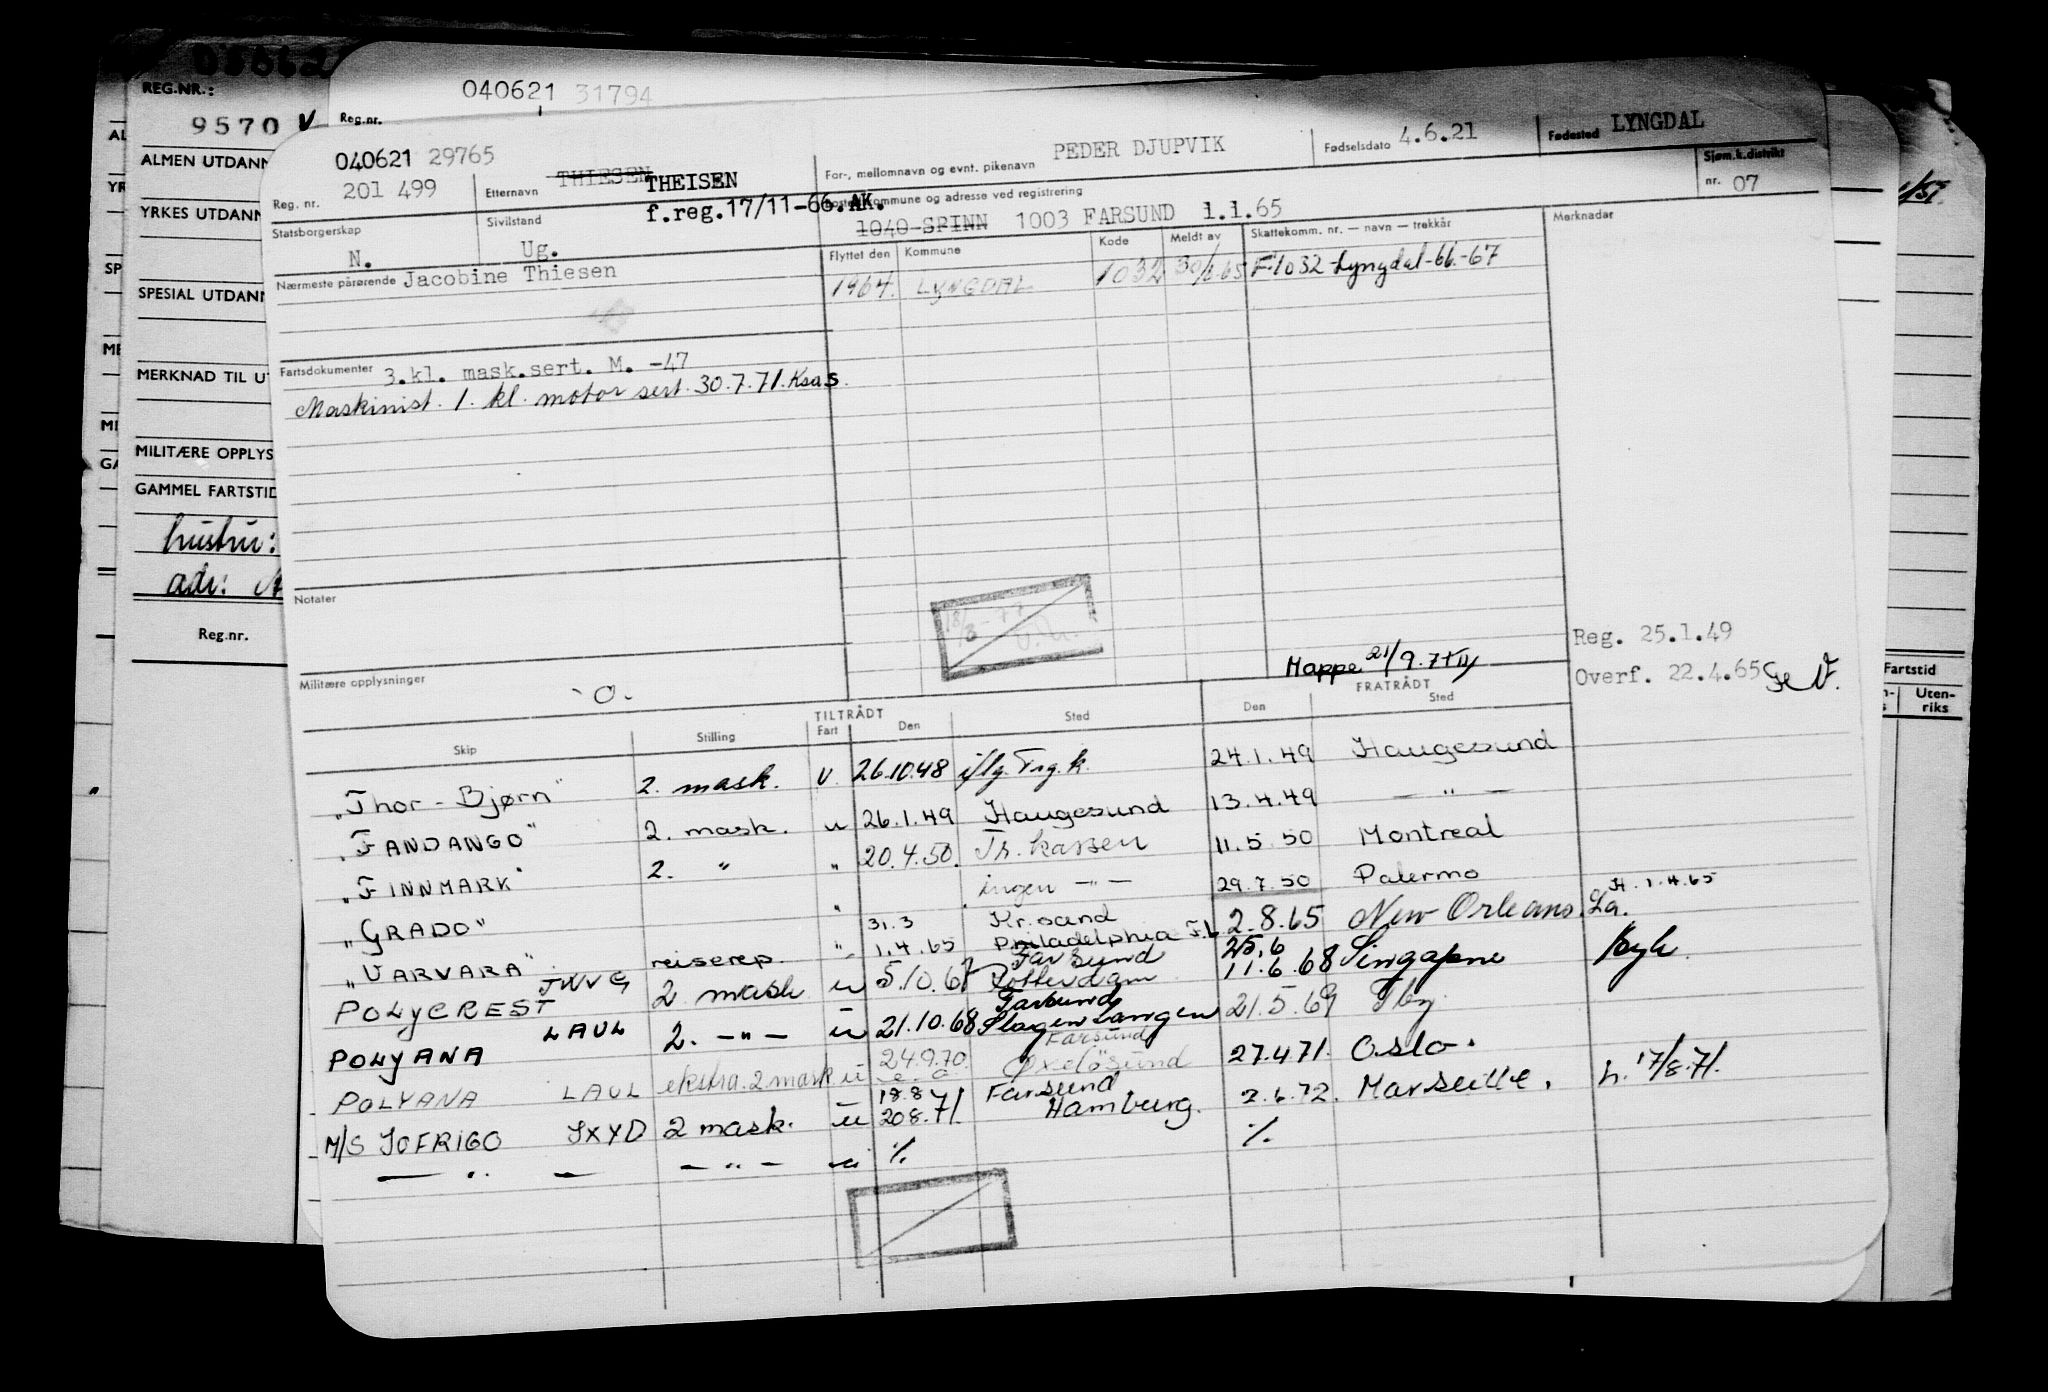 REG.NR.:
9570 V
ALMEN UTDANN
YRKES UTDANN
SPESIAL UTDANN
MERKNAD TIL UT
MILITÆRE OPPLYS
GAMMEL FARTSTID
hustru:
adr:
Reg.nr.
Fartstid
Uten-
riks
040621 31794
Reg.nr.
040621 29765
Reg. nr. 201 499
Etternavn THIESEN THEISEN
f.reg.17/11-66.AK.
For-, mellomnavn og evnt. pikenavn PEDER DJUPVIK
Fødselsdato 4.6.21
Fødested LYNGDAL
Statsborgerskap N.
Sivilstand Ug.
kommune og adresse ved registrering
1040 SPINN 1003 FARSUND 1.1.65
Sjøm.k.distrikt
nr. 07
Nærmeste pårørende Jacobine Thiesen
Flyttet den Kommune Kode Meldt av Skattekomm. nr. — navn — trekkår Merknader
1964. LYNGDAL 1032 F-1032-Lyngdal-66-67
Fartsdokumenter 3.kl. mask.sert. M. -47
Maskinist. 1. kl. motor sert. 30.7.71. Ksas.
Notater
Militære opplysninger -0-
Mappe 21/9.71
Reg. 25.1.49
Overf. 22.4.65
TILTRÅDT FRATRÅDT
Skip Stilling Fart Den Sted Den Sted
"Thor-Bjørn" 2. mask. U. 26.10.48 24.1.49 Haugesund
"FANDANGO" 2. mask. u 26.1.49 Haugesund 13.4.49 — " —
"FINNMARK" 2. " " 20.4.50. Tr. kassen 11.5.50 Montreal
"GRADO" " ingen — " — 29.7.50 Palermo
31.3 Kr.sand H. 1.4.65
"VARVARA" reiserep. " 1.4.65 Philadelphia 2.8.65 New Orleans. La.
Farsund 25.6
POLYCREST JWVG 2 mask u 5.10.67 Rotterdam 11.6.68 Singapore
Farsund
POLYANA LAUL 2. — " — u 21.10.68 Slagentangen 21.5.69 Tbg.
24.9.70. Farsund
POLYANA LAUL ekstra. 2 mask u Oxelösund 27.4.71. Oslo.
18.8 Farsund
M/S JOFRIGO JXYD 2 mask. u 20.8.71. Hamburg. 2.6.72. Marseille. h. 17/8.71.
— " — — " — u % %